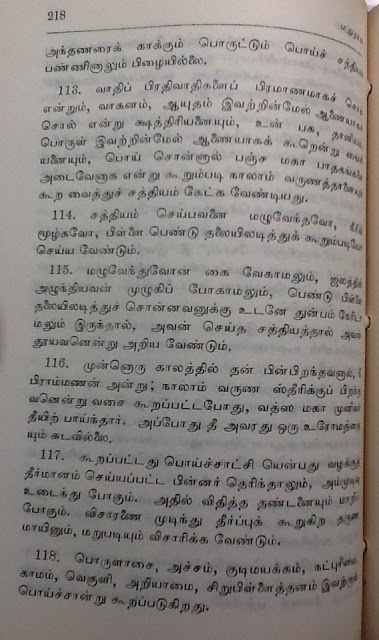 218
அந்தணரைக் காக்கும் பொருட்டும் பொய்ச்
பண்ணினாலும் பிழையில்லை.
113. வாதிப் பிரதிவாதிகளைப் பிரமாணமாகச்
என்றும், வாகனம், ஆயுதம் இவற்றின்மேல் ஆணையாகச்
சொல் என்று க்ஷத்திரியனையும், உன் பசு,
பொருள் இவற்றின்மேல் ஆணையாகக் கூறென்று
யனையும், பொய் சொன்னால் பஞ்ச மகா
அடைவேனாக என்று கூறும்படி நாலாம் வருணத்தானையும்
கூற வைத்துச் சத்தியம் கேட்க வேண்டியது.
114. சத்தியம் செய்பவனை மழுவேந்தவோ,
மூழ்கவோ, பிள்ளை பெண்டு தலையிலடித்துக்
செய்ய வேண்டும்.
115. மழுவேந்துவோன் கை வேகாமலும்,
அழுந்தியவன் முழுகிப் போகாமலும், பெண்டு
தலையிலடித்துச் சொன்னவனுக்கு உடனே துன்பம்
மலும் இருந்தால், அவன் செய்த சத்தியத்தால்
தூயவனென்று அறிய வேண்டும்.
116. முன்னொரு காலத்தில் தன் பின்பிறந்தவனால்,
பிராம்மணன் அன்று; நாலாம் வருண ஸ்திரீக்குப்
வனென்று வசை கூறப்பட்டபோது, வத்ஸ மகா
தீயிற் பாய்ந்தார். அப்போது தீ அவரது ஒரு
யும் சுடவில்லை.
117. கூறப்பட்டது பொய்ச்சாட்சி யென்பது
தீர்மானம் செய்யப்பட்ட பின்னர் தெரிந்தாலும்,
உடைந்து போகும். அதில் விதித்த தண்டனையும்
போகும். விசாரணை முடிந்து தீர்ப்புக் கூறுகிற
மாயினும், மறுபடியும் விசாரிக்க வேண்டும்.
118. பொருளாசை, அச்சம், குடிமயக்கம்,
காமம், வெகுளி, அறியாமை, சிறுபிள்ளைத்தனம்
பொய்ச்சான்று கூறப்படுகிறது.